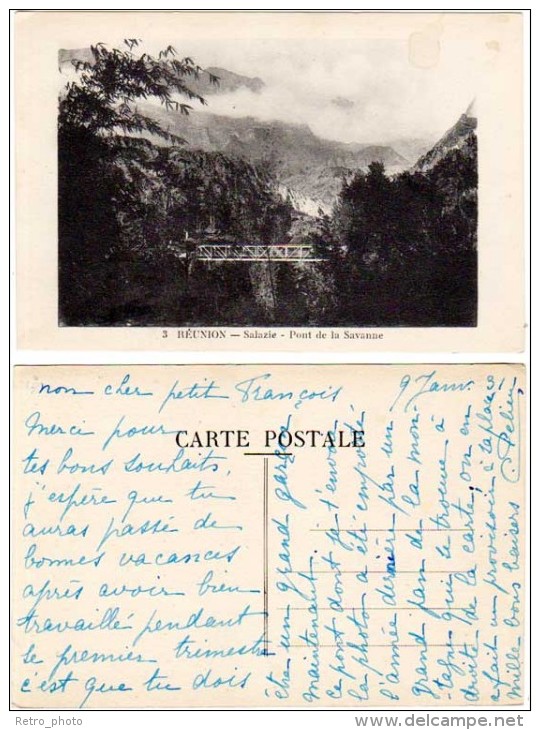 3 RÉUNION — Salazie - Pont de la Savanne
CARTE POSTALE
9 Janv.
mon cher petit François
Merci pour
tes bons souhaits,
j'espère que tu
auras passé de
bonnes vacances
après avoir bien
travaillé pendant
le premier trimestre
c'est que tu dois
être un grand garçon
maintenant.
ce pont dont je t'envoie
la photo a été emporté
l'année dernière par un
grand pan de la mon-
-tagne qui se trouve à
droite de la carte, on en
a fait un provisoire à la place
mille bons baisers
Retro_photo